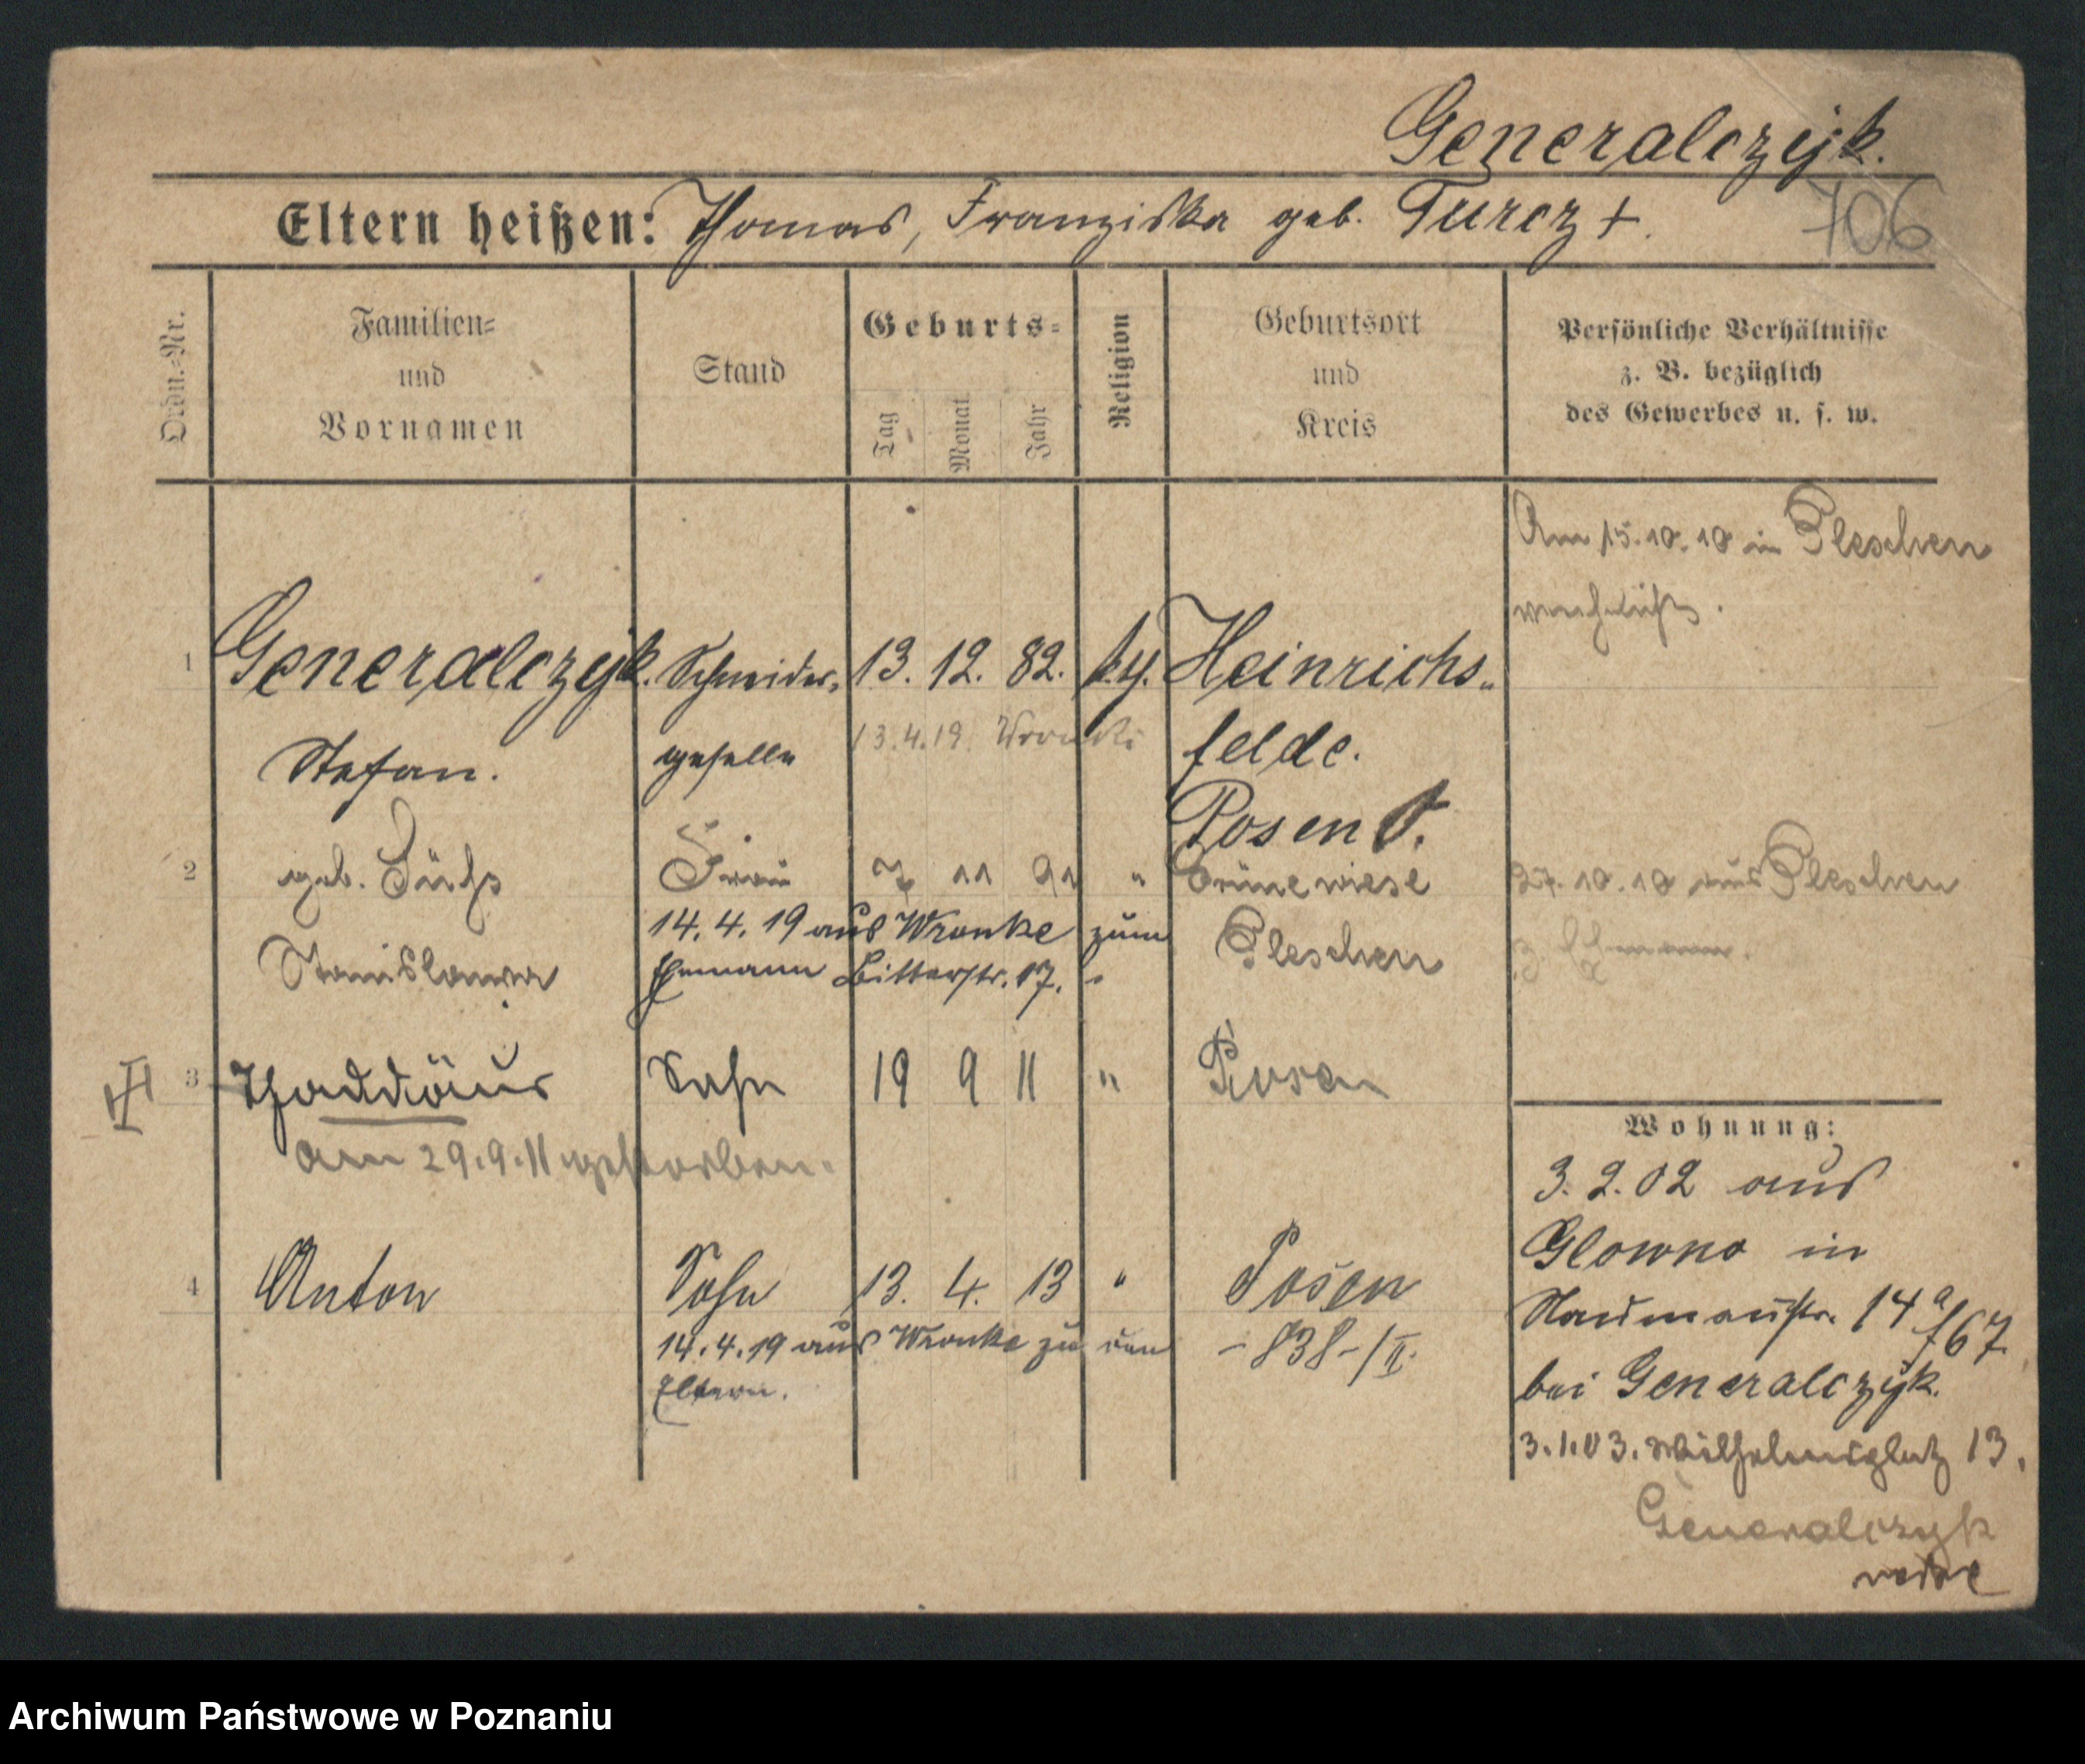 Generalczyk.
706
Eltern heißen: Thomas, Franziska geb. Turcz +.
Ordn.=Nr.
Familien=
und
Vornamen
Stand
Geburts=
Tag
Monat
Jahr
Religion
Geburtsort
und
Kreis
Persönliche Verhältnisse
z. B. bezüglich
des Gewerbes u. s. w.
Am 15.10.10 in Pleschen
1 Generalczyk. Schneider- 13. 12. 82. Heinrichs-
Stefan. geselle 13.4.19. Wronke felde.
Posen O.
2 geb. Frau 7 11 91 " Grünewiese 27.10.10 aus Pleschen
14. 4. 19 aus Wronke zum Pleschen z. Ehemann.
Stanislawa Ehemann Bitterstr. 17.
3 Thaddäus Sohn 19 9 11 " Posen
am 29.9.11 gestorben.
4 Anton Sohn 13. 4. 13 " Posen
14.4.19 aus Wronke zu den -838-/II.
Eltern.
Wohnung:
3. 2. 02 aus
Glowno in
Naumannstr. 14 a/67
bei Generalczyk.
3.1.03. Wilhelmsplatz 13.
Generalczyk
Archiwum Państwowe w Poznaniu